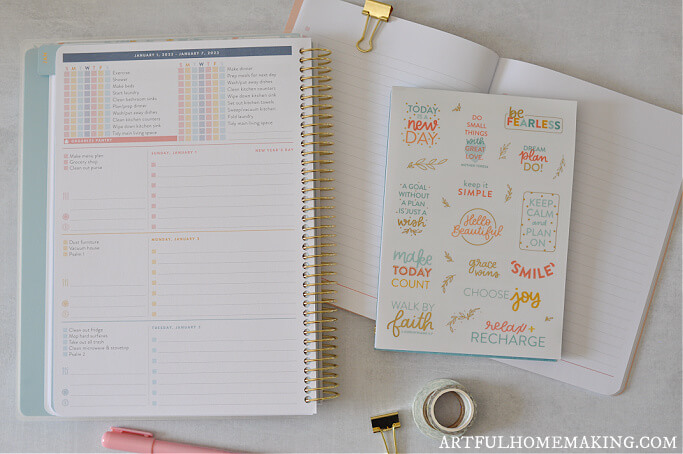 JANUARY 1, 2023 - JANUARY 7, 2023
S M T W T F S
Exercise
Shower
Make beds
Start laundry
Clean bathroom sinks
Plan/prep dinner
Wash/put away dishes
Clean kitchen counters
Wipe down kitchen sink
Tidy main living space
Make dinner
Prep meals for next day
Wash/put away dishes
Clean kitchen counters
Wipe down kitchen sink
Set out kitchen towels
Sweep/vacuum kitchen
Fold laundry
Tidy main living space
Make menu plan
Grocery shop
Clean out purse
SUNDAY, JANUARY 1
NEW YEAR'S DAY
Dust furniture
Vacuum house
Psalm 1
MONDAY, JANUARY 2
Clean out fridge
Mop hard surfaces
Take out all trash
Clean microwave & stovetop
Psalm 2
TUESDAY, JANUARY 3
TODAY
IS A
new
DAY
DO
SMALL
THINGS
with
GREAT
LOVE
be
FEARLESS
DREAM
plan
DO!
A GOAL
WITHOUT
A PLAN
IS JUST A
wish
keep it
SIMPLE
Hello
Beautiful
KEEP
CALM
and
PLAN
ON
make
TODAY
COUNT
grace
wins
"SMILE"
CHOOSE joy
WALK BY
faith
relax +
RECHARGE
ARTFULHOMEMAKING.COM